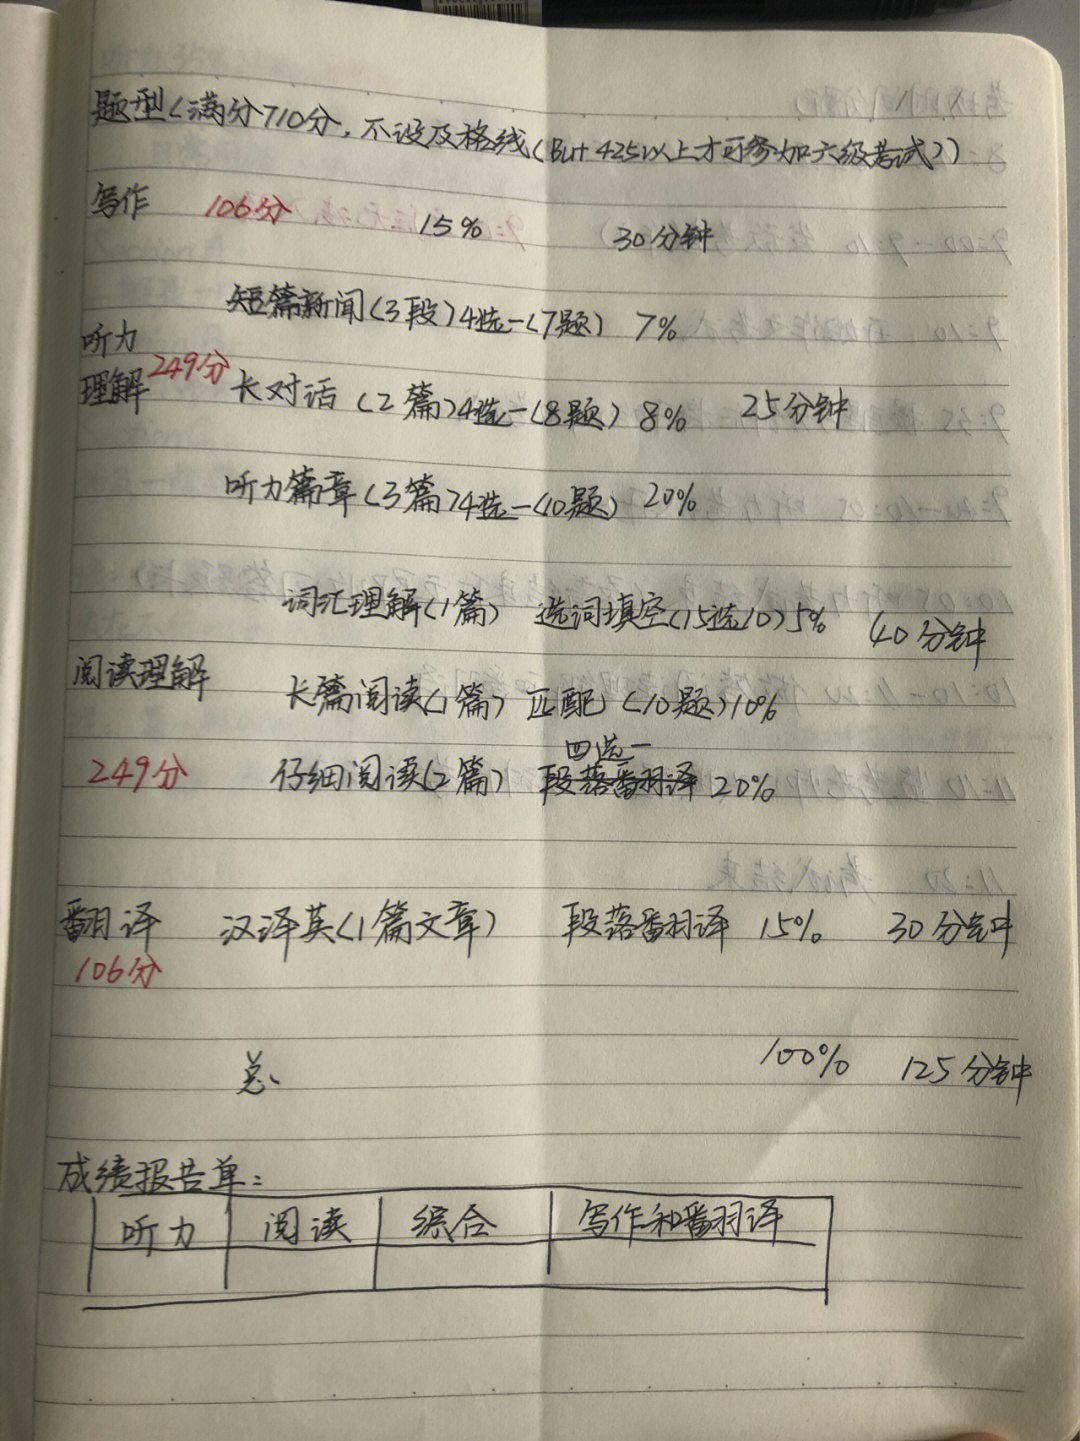 题型(满分710分,不设及格线(But 425以上才可参加六级考试))
写作 106分 15% 30分钟
短篇新闻(3段)4选一(7题) 7%
听力
理解 249分 长对话(2篇)4选一(8题) 8% 25分钟
听力篇章(3篇)4选一(10题) 20%
词汇理解(1篇) 选词填空(15选10)5% 40分钟
阅读理解
长篇阅读(1篇) 匹配 (10题)10%
四选一
249分 仔细阅读(2篇) 段落翻译 20%
翻译 汉译英(1篇文章) 段落翻译 15% 30分钟
106分
总、 100% 125分钟
成绩报告单:
听力 阅读 综合 写作和翻译